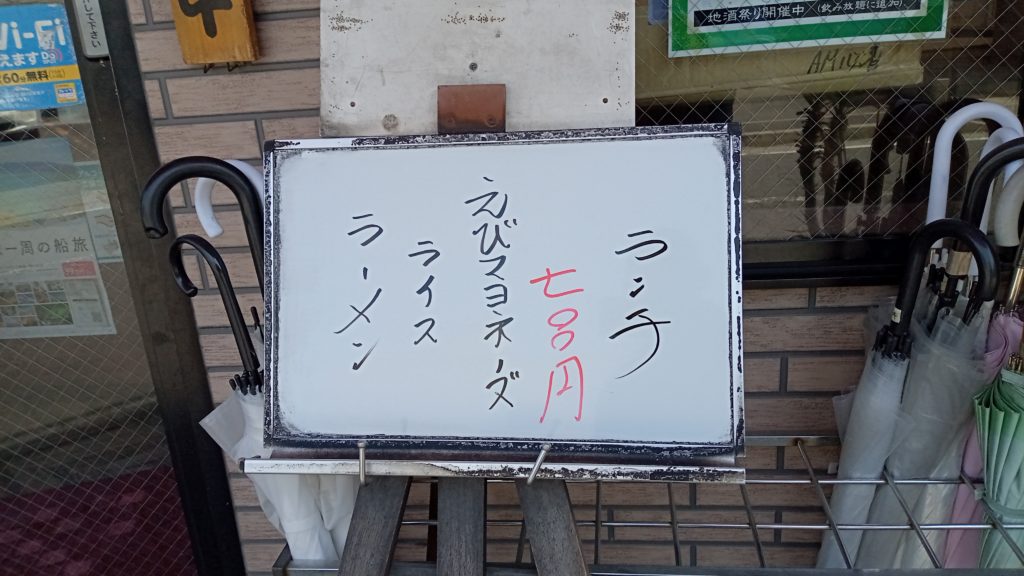 ランチ
七〇〇円
えびマヨネーズ
ライス
ラーメン
地酒祭り開催中(飲み放題に追加)
して下さい
i-Fi
えます
60分無料
一周の船旅